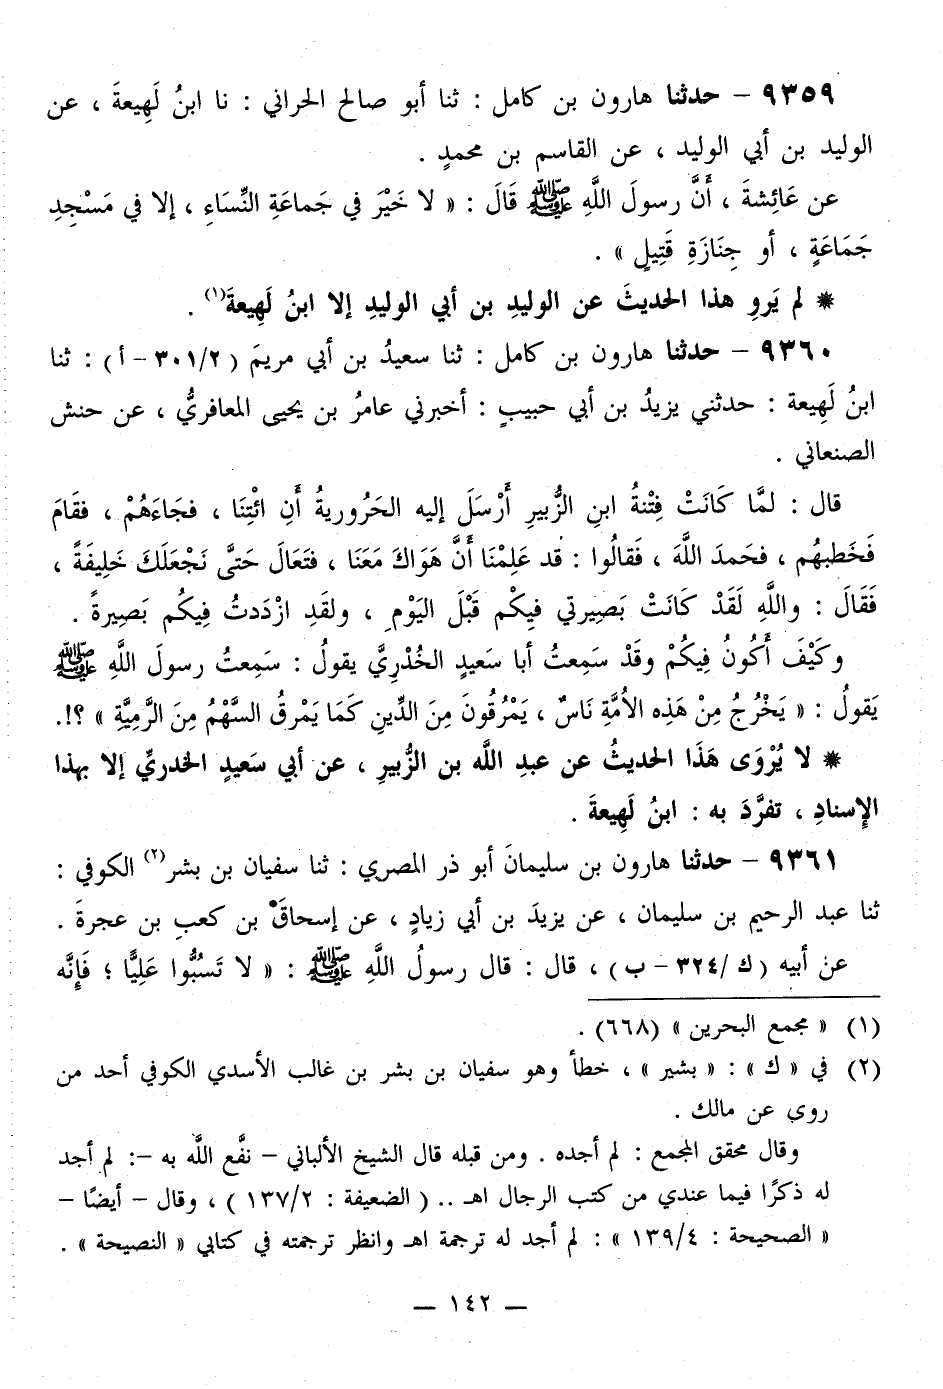 ٩٣٥٩ – حدثنا هارون بن كامل : ثنا أبو صالح الحراني : نا ابنُ لَهِيعةَ ، عن
الوليد بن أبي الوليد ، عن القاسم بن محمدٍ .
عن عَائِشةَ ، أَنَّ رسولَ اللَّهِ ﷺ قَالَ : « لا خَيْرَ في جَماعَةِ النِّسَاءِ ، إلا في مَسْجِدِ
جَمَاعَةٍ ، أو جِنَازَةِ قَتِيلٍ » .
* لم يَروِ هذا الحديثَ عن الوليدِ بن أبي الوليدِ إلا ابنُ لَهِيعةَ(١) .
٩٣٦٠ – حدثنا هارون بن كامل : ثنا سعيدُ بن أبي مريمَ ( ٣٠١/٢ – أ ) : ثنا
ابنُ لَهِيعة : حدثني يزيدُ بن أبي حبيبٍ : أخبرني عامرُ بن يحيى المعافريُّ ، عن حنش
الصنعاني .
قال : لمَّا كَانَتْ فِتْنةُ ابنِ الزُّبيرِ أَرْسَلَ إليه الحَرُوريةُ أَنِ ائْتِنَا ، فجَاءَهُمْ ، فقَامَ
فَخَطبهُم ، فحَمدَ اللَّهَ ، فَقالُوا : قد عَلِمْنَا أَنَّ هَوَاكَ مَعَنَا ، فتَعَالَ حَتَّى نَجْعَلَكَ خَلِيفَةً ،
فَقَالَ : واللَّهِ لَقَدْ كَانَتْ بَصِيرتي فيكُم قَبْلَ اليَوْمِ ، ولقَدِ ازْدَدتُ فِيكُم بَصِيرةً .
وكَيْفَ أَكُونُ فِيكُمْ وقَدْ سَمِعتُ أبا سَعيدٍ الخُدْرِيَّ يقولُ : سَمِعتُ رسولَ اللَّهِ ﷺ
يَقولُ : « يَخْرُجُ مِنْ هَذِه الأمَّةِ نَاسٌ ، يَمْرُقُونَ مِنَ الدِّينِ كَمَا يَمْرقُ السَّهْمُ مِنَ الرَّمِيَّةِ » ؟!.
* لا يُرْوَى هَذَا الحديثُ عن عبدِ اللَّه بن الزُّبيرِ ، عن أبي سَعيدٍ الخدريِّ إلا بهذا
الإسنادِ ، تفرَّدَ به : ابنُ لَهِيعةَ .
٩٣٦١ – حدثنا هارون بن سليمانَ أبو ذر المصري : ثنا سفيان بن بشر(٢) الكوفي :
ثنا عبد الرحيم بن سليمان ، عن يزيدَ بن أبي زيادٍ ، عن إسحاقَ بن كعبِ بن عجرةَ .
عن أبيه ( ك /٣٢٤ – ب ) ، قال : قال رسولُ اللَّهِ ﷺ : « لا تَسبُّوا عَليًّا ؛ فَإِنَّه
(١) « مجمع البحرين » (٦٦٨) .
(٢) في « ك » : « بشير » ، خطأ وهو سفيان بن بشر بن غالب الأسدي الكوفي أحد من
روى عن مالك .
وقال محقق المجمع : لم أجده . ومن قبله قال الشيخ الألباني – نفَّع اللَّه به –: لم أجد
له ذكرًا فيما عندي من كتب الرجال اهـ .. ( الضعيفة : ١٣٧/٢ ) ، وقال – أيضًا –
« الصحيحة : ١٣٩/٤ » : لم أجد له ترجمة اهـ وانظر ترجمته في كتابي « النصيحة » .
— ١٤٢ —